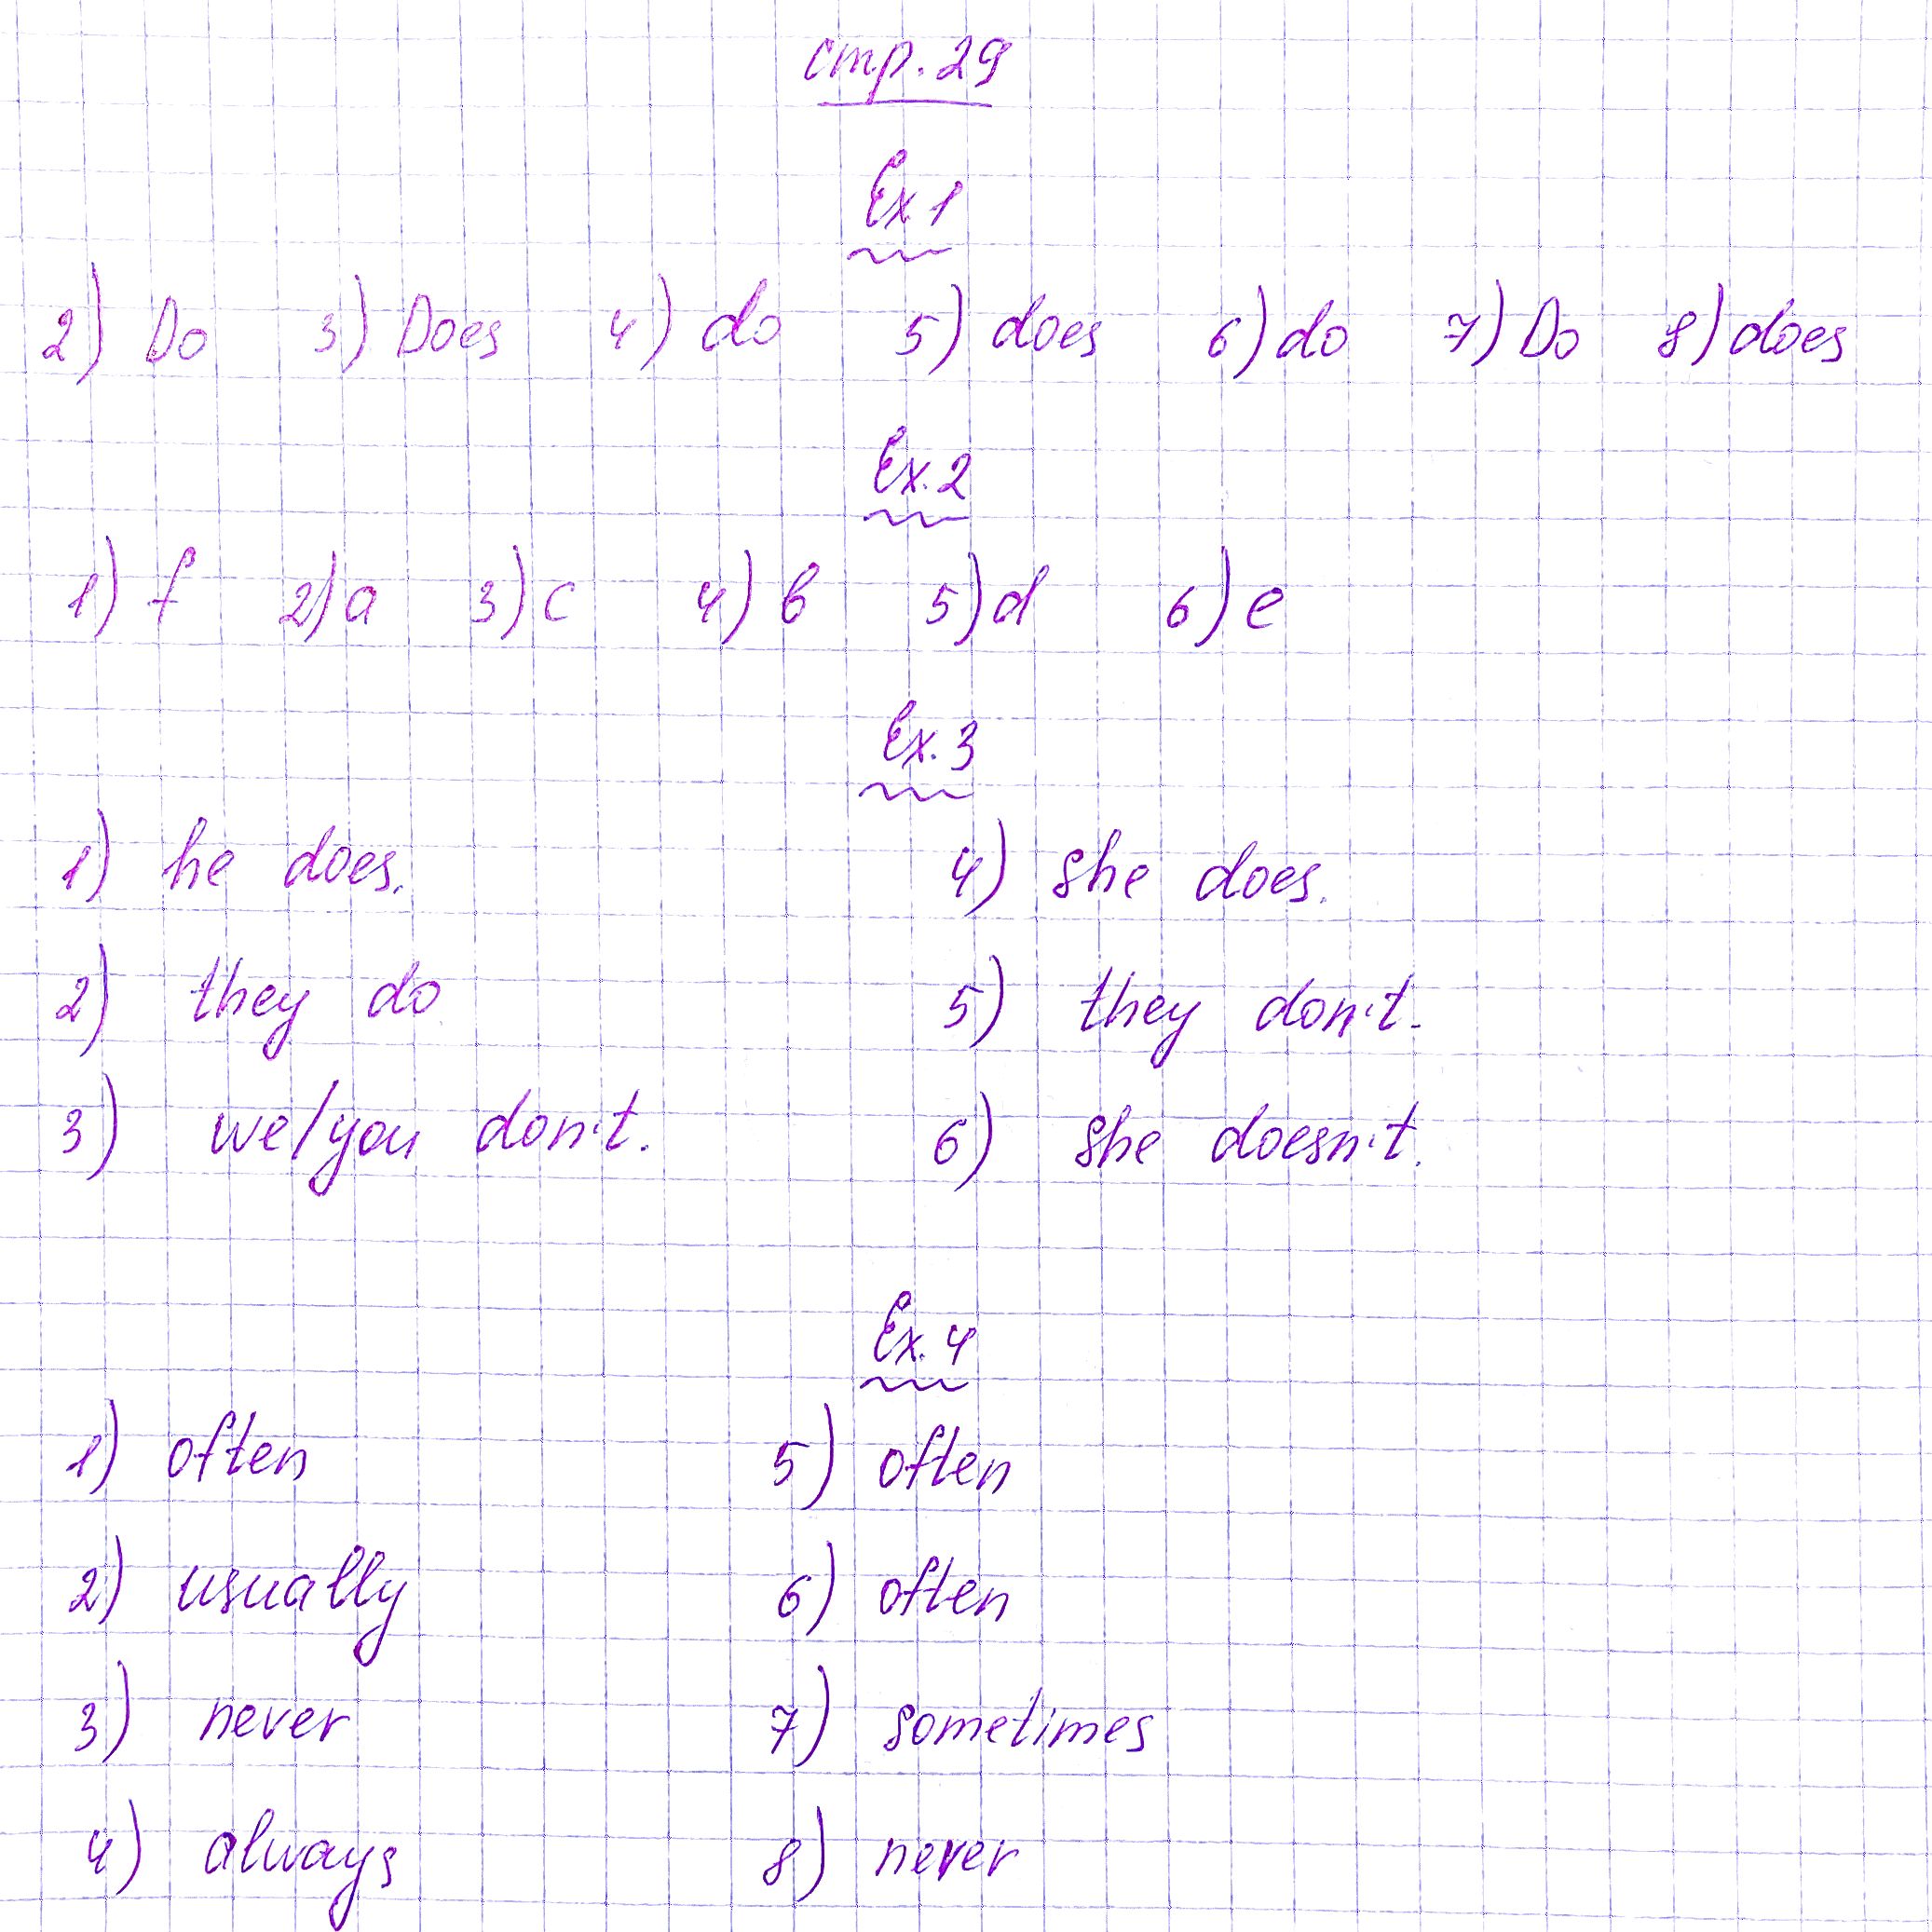 стр. 29
Ex. 1
2) Do 3) Does 4) do 5) does 6) do 7) Do 8) does
Ex. 2
1) f 2) a 3) c 4) b 5) d 6) e
Ex. 3
1) he does. 4) she does.
2) they do 5) they don't.
3) we/you don't. 6) she doesn't.
Ex. 4
1) often 5) often
2) usually 6) often
3) never 7) sometimes
4) always 8) never